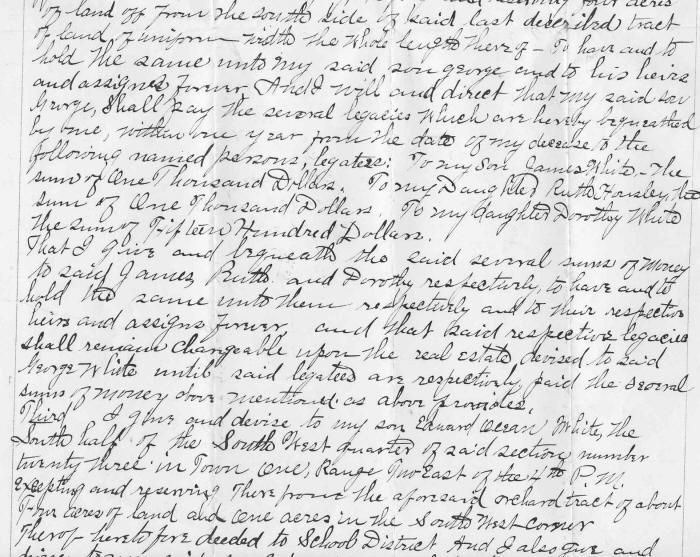 of land off from the south side of said last described tract
of land, of uniform width the whole length thereof - To have and to
hold the same unto my said son george and to his heirs
and assigns forever. And I will and direct that my said son
George, shall pay the several legacies which are hereby bequeathed
by me, within one year from the date of my decease to the
following named persons, legatees: To my Son James White, - the
sum of One Thousand Dollars. To my Daughter Ruth Housley, the
sum of One Thousand Dollars. To my daughter Dorothy White
the sum of Fifteen Hundred Dollars.
That I give and bequeath the said several sums of money
to said James, Ruth and Dorothy respectively, to have and to
hold the same unto them respectively and to their respective
heirs and assigns forever, and that said respective legacies
shall remain chargeable upon the real estate devised to said
George White until said legatees are respectively paid the several
sums of money above mentioned as above provides.
Third I give and devise to my son Edward Ocean White, the
South half of the South West quarter of said section number
twenty three in Town One, Range Two East of the 4th P.M.
Excepting and reserving There from the aforesaid orchard tract of about
Five acres of land and One acres in the South West corner
Therof heretofore deeded to School District And I also give and